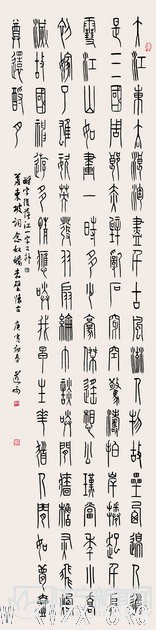 大江東去浪淘盡千古風流人物故壘西邊人道
是三國周郎赤壁亂石穿空驚濤拍岸捲起千堆
雪江山如畫一時多少豪傑遙想公瑾當年小喬
初嫁了雄姿英發羽扇綸巾談笑間檣櫓灰飛煙
滅故國神遊多情應笑我早生華髮人間如夢一
尊還酹月
蘇東坡詞念奴嬌赤壁懷古 庚寅初春